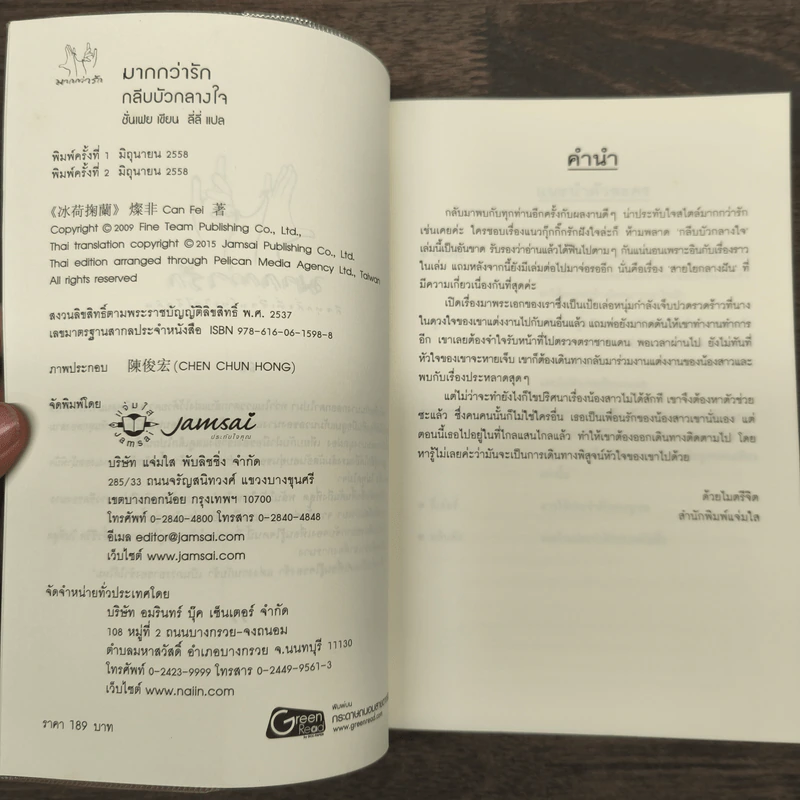 มากกว่ารัก
มากกว่ารัก
กลีบบัวกลางใจ
ชั่นเฟย เขียน ลี่ลี่ แปล
พิมพ์ครั้งที่ 1 มิถุนายน 2558
พิมพ์ครั้งที่ 2 มิถุนายน 2558
《冰荷掬蘭》 燦非 Can Fei 著
Copyright © 2009 Fine Team Publishing Co., Ltd.,
Thai translation copyright © 2015 Jamsai Publishing Co., Ltd.
Thai edition arranged through Pelican Media Agency Ltd., Taiwan
All rights reserved
สงวนลิขสิทธิ์ตามพระราชบัญญัติลิขสิทธิ์ พ.ศ. 2537
เลขมาตรฐานสากลประจำหนังสือ ISBN 978-616-06-1598-8
ภาพประกอบ 陳俊宏 (CHEN CHUN HONG)
จัดพิมพ์โดย
แจ่มใส
Jamsai
Jamsai
ประทับใจคุณ
บริษัท แจ่มใส พับลิชชิ่ง จำกัด
285/33 ถนนจรัญสนิทวงศ์ แขวงบางขุนศรี
เขตบางกอกน้อย กรุงเทพฯ 10700
โทรศัพท์ 0-2840-4800 โทรสาร 0-2840-4848
อีเมล editor@jamsai.com
เว็บไซต์ www.jamsai.com
จัดจำหน่ายทั่วประเทศโดย
บริษัท อมรินทร์ บุ๊ค เซ็นเตอร์ จำกัด
108 หมู่ที่ 2 ถนนบางกรวย-จงถนอม
ตำบลมหาสวัสดิ์ อำเภอบางกรวย จ.นนทบุรี 11130
โทรศัพท์ 0-2423-9999 โทรสาร 0-2449-9561-3
เว็บไซต์ www.naiin.com
ราคา 189 บาท
Green
Read
พิมพ์บน
กระดาษถนอมสายตา
www.greenread.com
คำนำ
กลับมาพบกับทุกท่านอีกครั้งกับผลงานดีๆ น่าประทับใจสไตล์มากกว่ารัก
เช่นเคยค่ะ ใครชอบเรื่องแนวกุ๊กกิ๊กรักฝังใจล่ะก็ ห้ามพลาด 'กลีบบัวกลางใจ'
เล่มนี้เป็นอันขาด รับรองว่าอ่านแล้วได้ฟินไปตามๆ กันแน่นอนเพราะอินกับเรื่องราว
ในเล่ม แถมหลังจากนี้ยังมีเล่มต่อไปมาจ่อรออีก นั่นคือเรื่อง 'สายใยกลางฝัน' ที่
มีความเกี่ยวเนื่องกันที่สุดค่ะ
เปิดเรื่องมาพระเอกของเราซึ่งเป็นเป๋อเล่อหนุ่มกำลังเจ็บปวดรวดร้าวที่นาง
ในดวงใจของเขาแต่งงานไปกับคนอื่นแล้ว แถมพ่อยังมากดดันให้เขาทำงานทำการ
อีก เขาเลยต้องจำใจรับหน้าที่ไปตรวจตราชายแดน พอเวลาผ่านไป ยังไม่ทันที่
หัวใจของเขาจะหายเจ็บ เขาก็ต้องเดินทางกลับมาร่วมงานแต่งงานของน้องสาวและ
พบกับเรื่องประหลาดสุดๆ
แต่ไม่ว่าจะทำยังไงก็ไขปริศนาเรื่องน้องสาวไม่ได้สักที เขาจึงต้องหาตัวช่วย
ซะแล้ว ซึ่งคนคนนั้นก็ไม่ใช่ใครอื่น เธอเป็นเพื่อนรักของน้องสาวเขานั่นเอง แต่
ตอนนี้เธอไปอยู่ในที่ไกลแสนไกลแล้ว ทำให้เขาต้องออกเดินทางติดตามไป โดย
หารู้ไม่เลยค่ะว่ามันจะเป็นการเดินทางพิสูจน์หัวใจของเขาไปด้วย
ด้วยไมตรีจิต
สำนักพิมพ์แจ่มใส